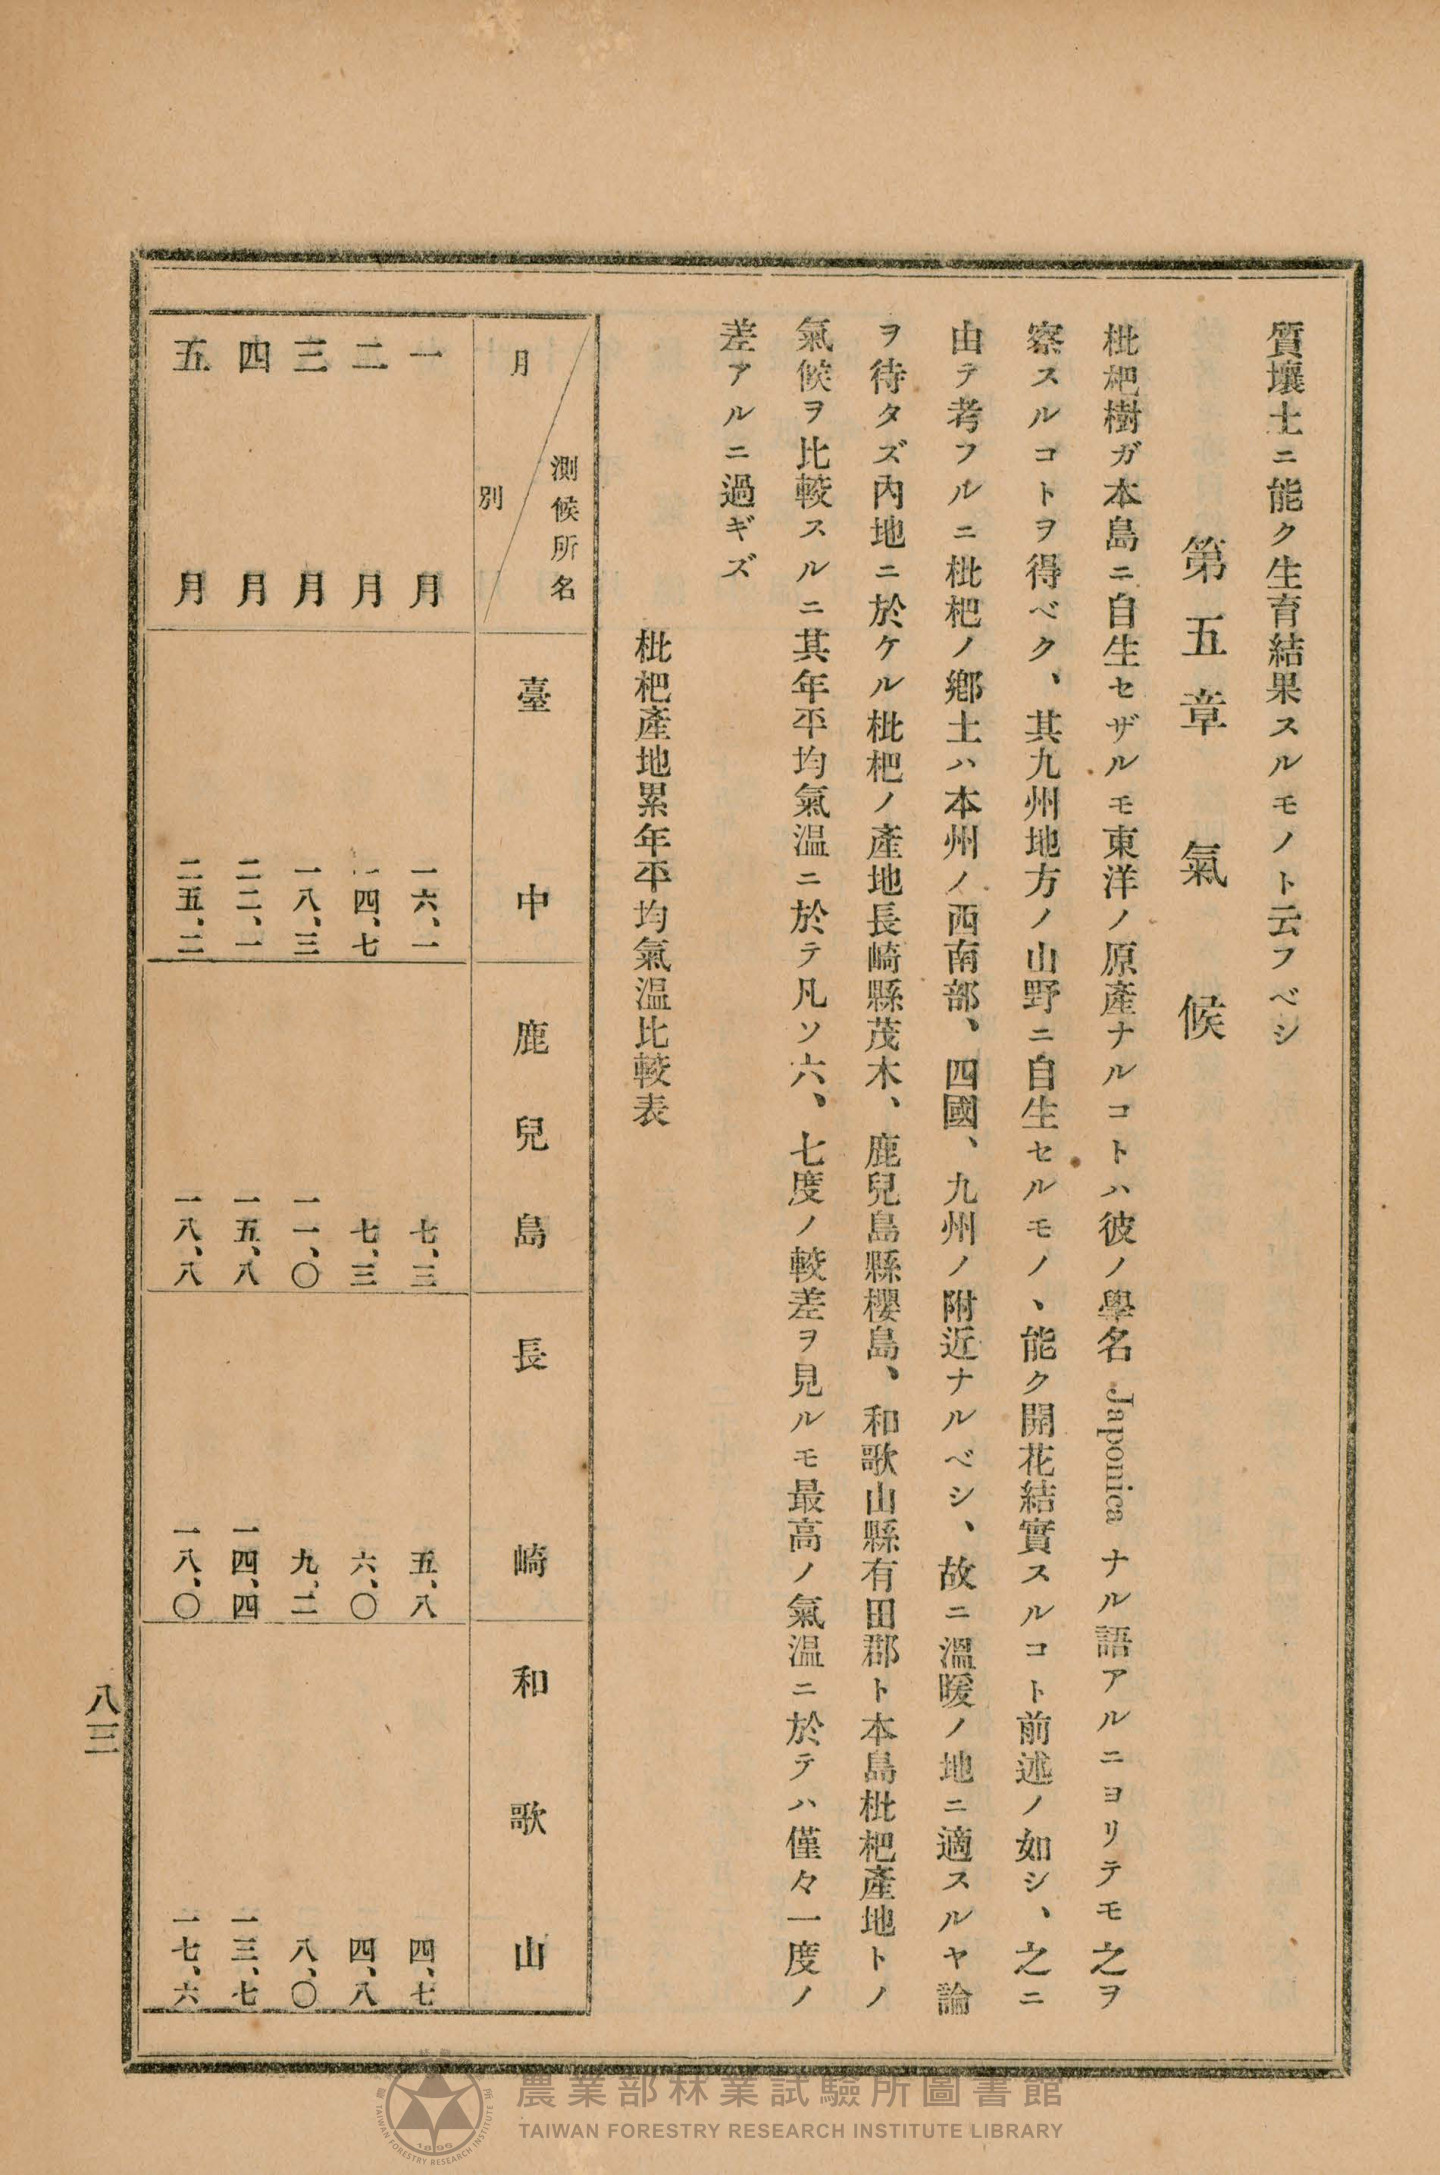 質壤土ニ能ク生育結果スルモノト云フベシ
第五章　氣候
枇杷樹ガ本島ニ自生セザルモ東洋ノ原產ナルコトハ彼ノ學名 Japonica ナル語アルニヨリテモ之ヲ
察スルコトヲ得ベク、其九州地方ノ山野ニ自生セルモノ、能ク開花結實スルコト前述ノ如シ、之ニ
由テ考フルニ枇杷ノ鄕土ハ本州ノ西南部、四國、九州ノ附近ナルベシ、故ニ溫暖ノ地ニ適スルヤ論
ヲ待タズ內地ニ於ケル枇杷ノ產地長崎縣茂木、鹿兒島縣櫻島、和歌山縣有田郡ト本島枇杷產地トノ
氣候ヲ比較スルニ其年平均氣溫ニ於テ凡ソ六、七度ノ較差ヲ見ルモ最高ノ氣溫ニ於テハ僅々一度ノ
差アルニ過ギズ
枇杷產地累年平均氣溫比較表
測候所名　月別　臺中　鹿兒島　長崎　和歌山
一月　一六、一　七、三　五、八　四、七
二月　一四、七　七、三　六、〇　四、八
三月　一八、三　一一、〇　九、二　八、〇
四月　二二、一　一五、八　一四、四　一三、七
五月　二五、二　一八、八　一八、〇　一七、六
八三
農業部林業試驗所圖書館
TAIWAN FORESTRY RESEARCH INSTITUTE LIBRARY
農業部林業試驗所
TAIWAN FORESTRY RESEARCH INSTITUTE
1896